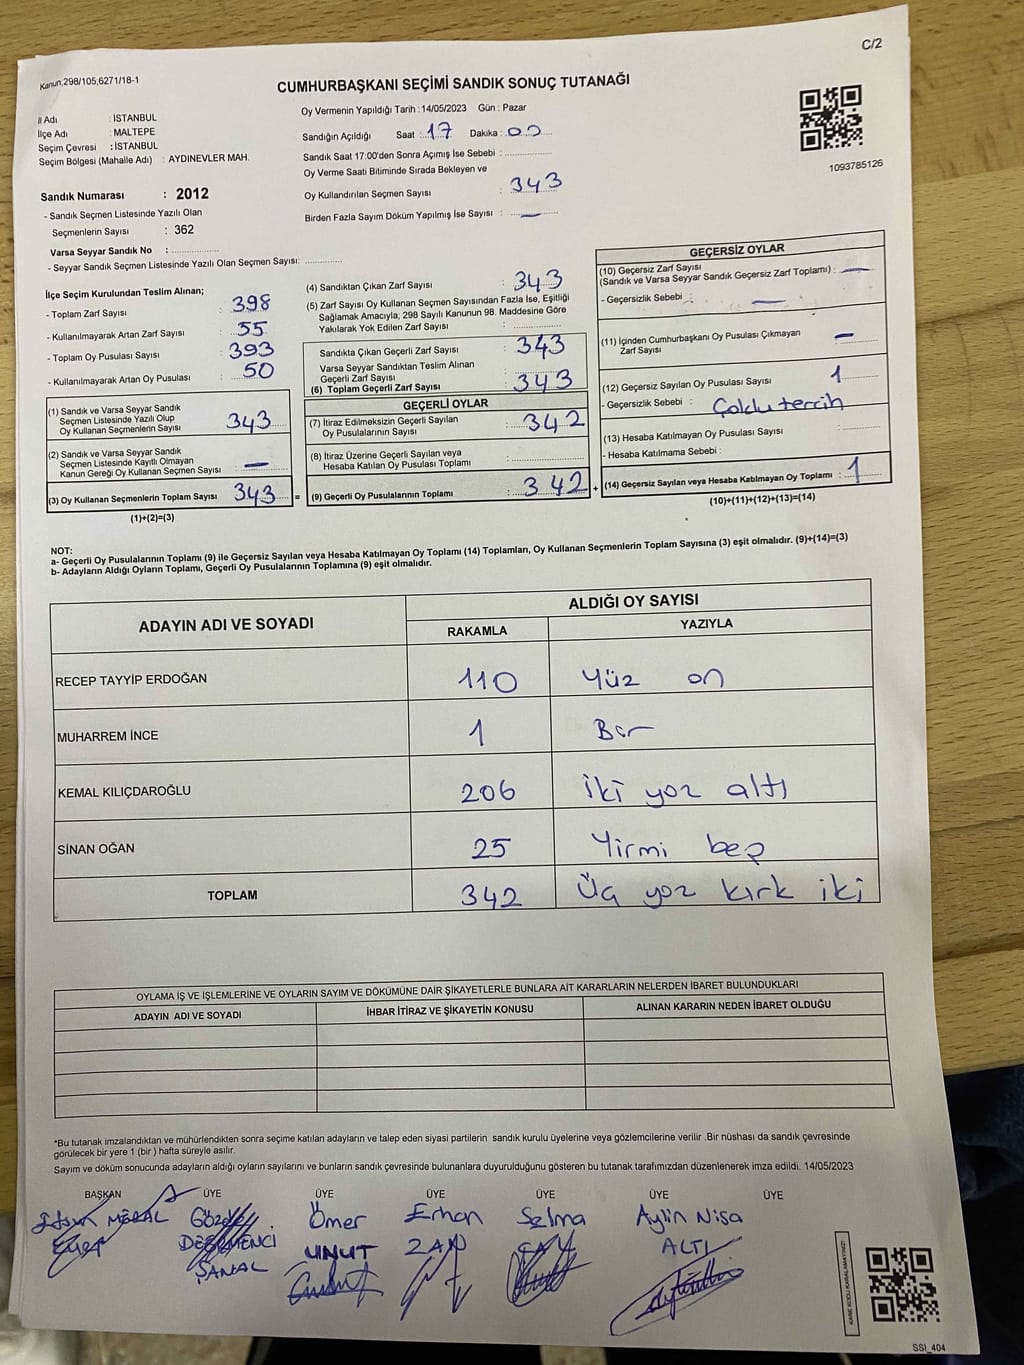 Kanun.298/105,6271/18-1
C/2
CUMHURBAŞKANI SEÇİMİ SANDIK SONUÇ TUTANAĞI
İl Adı : İSTANBUL
İlçe Adı : MALTEPE
Seçim Çevresi : İSTANBUL
Seçim Bölgesi (Mahalle Adı) : AYDINEVLER MAH.
Oy Vermenin Yapıldığı Tarih :14/05/2023 Gün : Pazar
Sandığın Açıldığı Saat : 17 Dakika : 00
Sandık Saat 17:00'den Sonra Açımış İse Sebebi :
Oy Verme Saati Bitiminde Sırada Bekleyen ve
Oy Kullandırılan Seçmen Sayısı : 343
Birden Fazla Sayım Döküm Yapılmış İse Sayısı : —
1093785126
Sandık Numarası : 2012
- Sandık Seçmen Listesinde Yazılı Olan
Seçmenlerin Sayısı : 362
Varsa Seyyar Sandık No :
- Seyyar Sandık Seçmen Listesinde Yazılı Olan Seçmen Sayısı:
İlçe Seçim Kurulundan Teslim Alınan;
- Toplam Zarf Sayısı : 398
- Kullanılmayarak Artan Zarf Sayısı : 55
- Toplam Oy Pusulası Sayısı : 393
- Kullanılmayarak Artan Oy Pusulası : 50
(1) Sandık ve Varsa Seyyar Sandık
Seçmen Listesinde Yazılı Olup
Oy Kullanan Seçmenlerin Sayısı : 343
(2) Sandık ve Varsa Seyyar Sandık
Seçmen Listesinde Kayıtlı Olmayan
Kanun Gereği Oy Kullanan Seçmen Sayısı : —
(3) Oy Kullanan Seçmenlerin Toplam Sayısı 343 =
(1)+(2)=(3)
(4) Sandıktan Çıkan Zarf Sayısı : 343
(5) Zarf Sayısı Oy Kullanan Seçmen Sayısından Fazla İse, Eşitliği
Sağlamak Amacıyla; 298 Sayılı Kanunun 98. Maddesine Göre
Yakılarak Yok Edilen Zarf Sayısı :
Sandıkta Çıkan Geçerli Zarf Sayısı : 343
Varsa Seyyar Sandıktan Teslim Alınan
Geçerli Zarf Sayısı :
(6) Toplam Geçerli Zarf Sayısı : 343
GEÇERLİ OYLAR
(7) İtiraz Edilmeksizin Geçerli Sayılan
Oy Pusulalarının Sayısı : 342
(8) İtiraz Üzerine Geçerli Sayılan veya
Hesaba Katılan Oy Pusulası Toplamı :
(9) Geçerli Oy Pusulalarının Toplamı : 342 +
GEÇERSİZ OYLAR
(10) Geçersiz Zarf Sayısı
(Sandık ve Varsa Seyyar Sandık Geçersiz Zarf Toplamı) : —
- Geçersizlik Sebebi : —
(11) İçinden Cumhurbaşkanı Oy Pusulası Çıkmayan
Zarf Sayısı —
(12) Geçersiz Sayılan Oy Pusulası Sayısı : 1
- Geçersizlik Sebebi : Çoklu tercih
(13) Hesaba Katılmayan Oy Pusulası Sayısı :
- Hesaba Katılmama Sebebi :
(14) Geçersiz Sayılan veya Hesaba Katılmayan Oy Toplamı : 1
(10)+(11)+(12)+(13)=(14)
NOT:
a- Geçerli Oy Pusulalarının Toplamı (9) ile Geçersiz Sayılan veya Hesaba Katılmayan Oy Toplamı (14) Toplamları, Oy Kullanan Seçmenlerin Toplam Sayısına (3) eşit olmalıdır. (9)+(14)=(3)
b- Adayların Aldığı Oyların Toplamı, Geçerli Oy Pusulalarının Toplamına (9) eşit olmalıdır.
ADAYIN ADI VE SOYADI
ALDIĞI OY SAYISI
RAKAMLA YAZIYLA
RECEP TAYYİP ERDOĞAN 110 Yüz on
MUHARREM İNCE 1 Bir
KEMAL KILIÇDAROĞLU 206 iki yoz altı
SİNAN OĞAN 25 Yirmi beş
TOPLAM 342 Üç yoz kırk iki
OYLAMA İŞ VE İŞLEMLERİNE VE OYLARIN SAYIM VE DÖKÜMÜNE DAİR ŞİKAYETLERLE BUNLARA AİT KARARLARIN NELERDEN İBARET BULUNDUKLARI
ADAYIN ADI VE SOYADI İHBAR İTİRAZ VE ŞİKAYETİN KONUSU ALINAN KARARIN NEDEN İBARET OLDUĞU
*Bu tutanak imzalandıktan ve mühürlendikten sonra seçime katılan adayların ve talep eden siyasi partilerin sandık kurulu üyelerine veya gözlemcilerine verilir .Bir nüshası da sandık çevresinde
görülecek bir yere 1 (bir ) hafta süreyle asılır.
Sayım ve döküm sonucunda adayların aldığı oyların sayılarını ve bunların sandık çevresinde bulunanlara duyurulduğunu gösteren bu tutanak tarafımızdan düzenlenerek imza edildi. 14/05/2023
BAŞKAN ÜYE ÜYE ÜYE ÜYE ÜYE ÜYE
MERAL Ömer Erhan Selma Aylin Nisa
DEĞİRMENCİ UMUT ZAP ALTI
ŞANAL
KARE KODU KARALAMAYINIZ!
SSİ_404